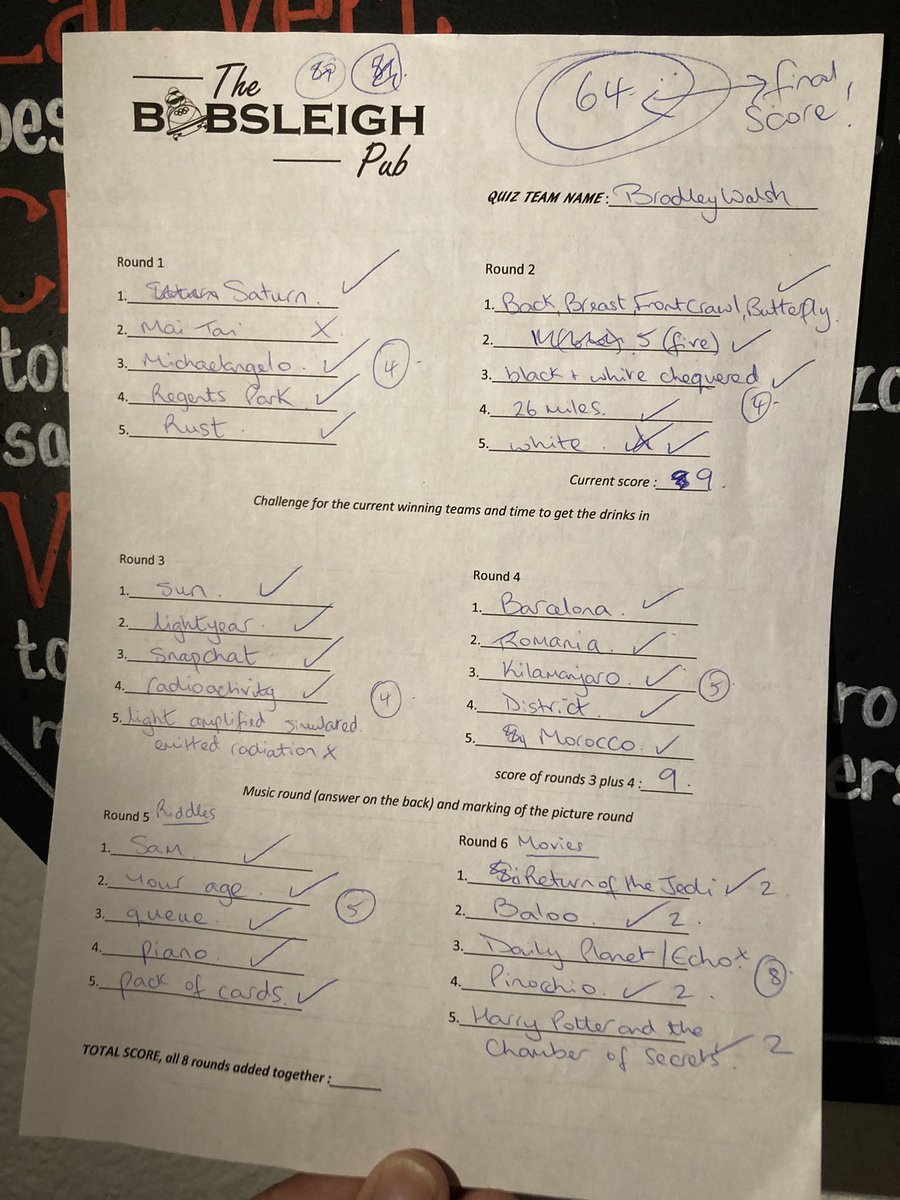 The
BOBSLEIGH
Pub
64
final
Score!
QUIZ TEAM NAME: Bradley Walsh
Round 1
1. Saturn.
2. Mai Tai X
3. Michaelangelo. ✓
4. Regents Park ✓
5. Rust. ✓
4
Round 2
1. Back, Breast, Front Crawl, Butterfly.
2. 5 (five) ✓
3. black + white chequered ✓
4. 26 Miles. ✓
5. white. ✓
4
Current score: 9.
Challenge for the current winning teams and time to get the drinks in
Round 3
1. Sun. ✓
2. lightyear. ✓
3. Snapchat ✓
4. radioactivity ✓
5. light amplified simulated
emitted radiation x
4
Round 4
1. Barcelona. ✓
2. Romania. ✓
3. Kilamanjaro. ✓
4. District. ✓
5. Morocco. ✓
5
score of rounds 3 plus 4: 9.
Music round (answer on the back) and marking of the picture round
Round 5 Riddles
1. Sam. ✓
2. Your age. ✓
3. queue. ✓
4. piano. ✓
5. pack of cards. ✓
5
Round 6 Movies
1. Return of the Jedi ✓ 2
2. Baloo. ✓ 2.
3. Daily Planet/Echo. x
4. Pinochio. ✓ 2.
5. Harry Potter and the
Chamber of Secrets. ✓ 2
8
TOTAL SCORE, all 8 rounds added together: